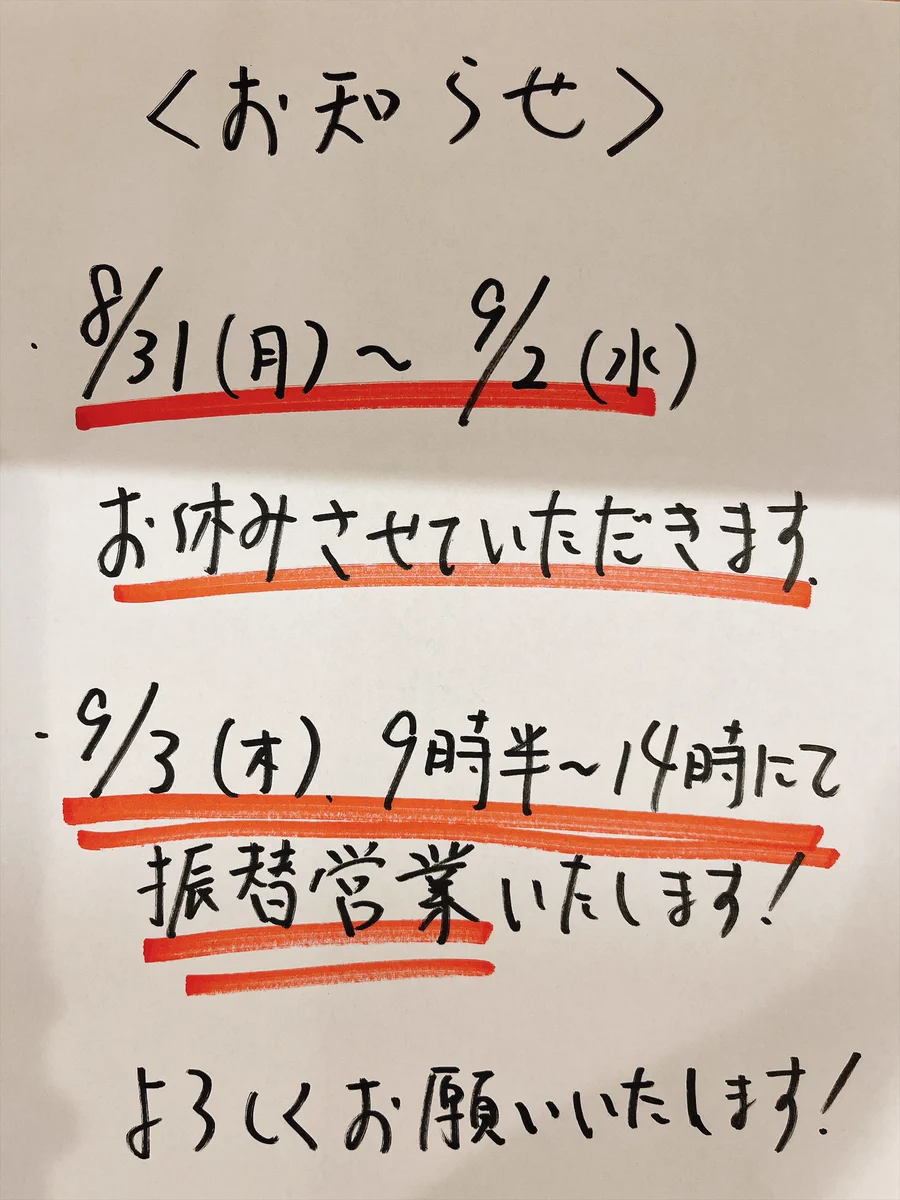 〈お知らせ〉
・8/31(月)～9/2(水)
お休みさせていただきます.
・9/3(木)、9時半～14時にて
振替営業いたします!
よろしくお願いいたします!